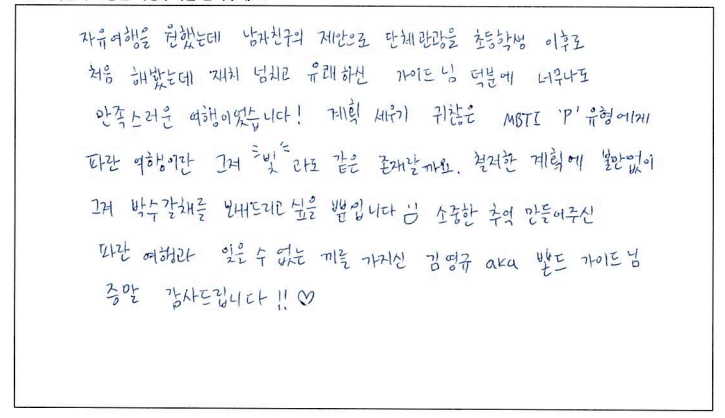 자유여행을 원했는데 남자친구의 제안으로 단체관광을 초등학생 이후로
처음 해봤는데 재치 넘치고 유쾌하신 가이드님 덕분에 너무나도
만족스러운 여행이었습니다! 계획 세우기 귀찮은 MBTI 'P' 유형에게
파란 여행이란 그저 빛과도 같은 존재랄까요. 철저한 계획에 불만없이
그저 박수갈채를 보내드리고 싶을 뿐입니다 소중한 추억 만들어주신
파란 여행과 잊을 수 없는 끼를 가지신 김영규 aka 본드 가이드님
증말 감사드립니다!! ♡